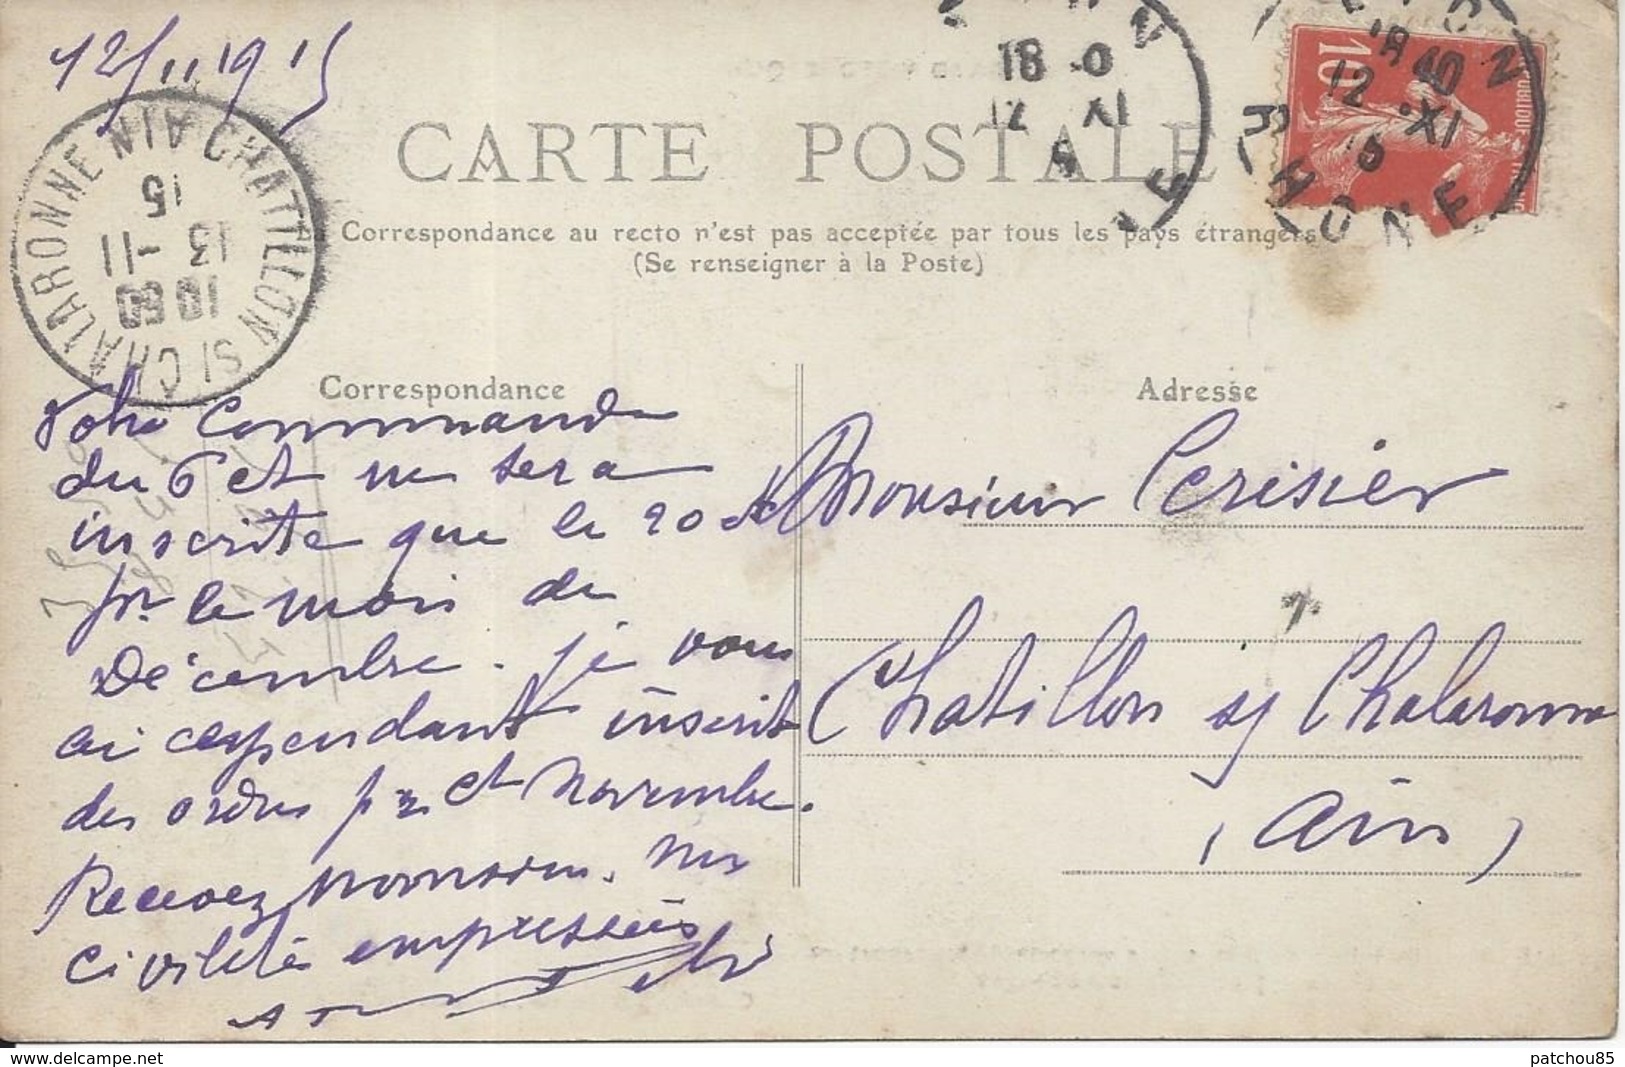 12/11 1915
CARTE POSTALE
Correspondance au recto n'est pas acceptée par tous les pays étrangers
(Se renseigner à la Poste)
CHATILLON S/ CHALARONNE AIN
10 50
13 -11
15
18 0
12 XI
RHONE
18
12 XI
15
10
Correspondance
Adresse
Votre Commande
du 6 ct ne sera
inscrite que le 20 ct
pr le mois de
Décembre. je vous
ai cependant inscrit
des ordres pr ct Novembre.
Recevez Monsieur. mes
civilités empressées
Monsieur Cerisier
Chatillon s/ Chalaronne
(Ain)
www.delcampe.net
patchou85